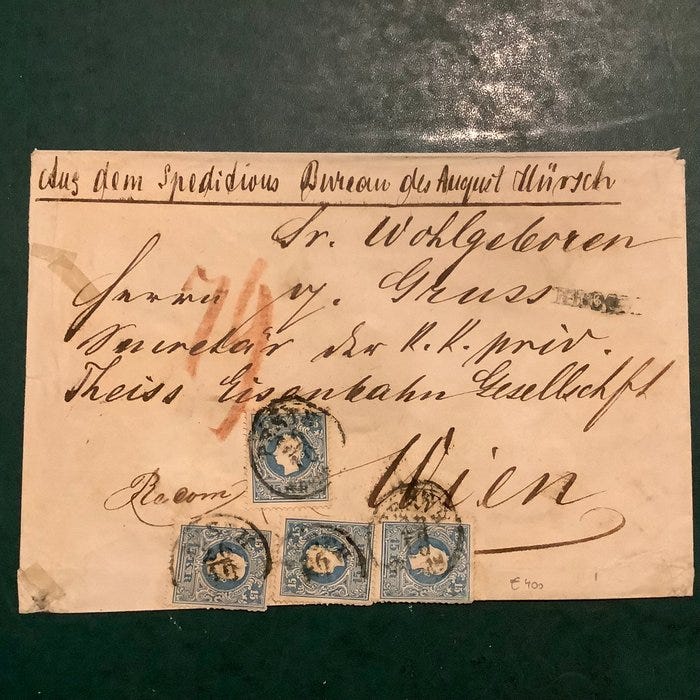 Aus dem Speditions Bureau des August Hürsch
Sr. Wohlgeboren
Herrn v. Gruss
Secretär der K. K. priv.
Theiss Eisenbahn Gesellschft
Wien
Recom
15 15
15 KR 15
15 15
15 KR
€ 400